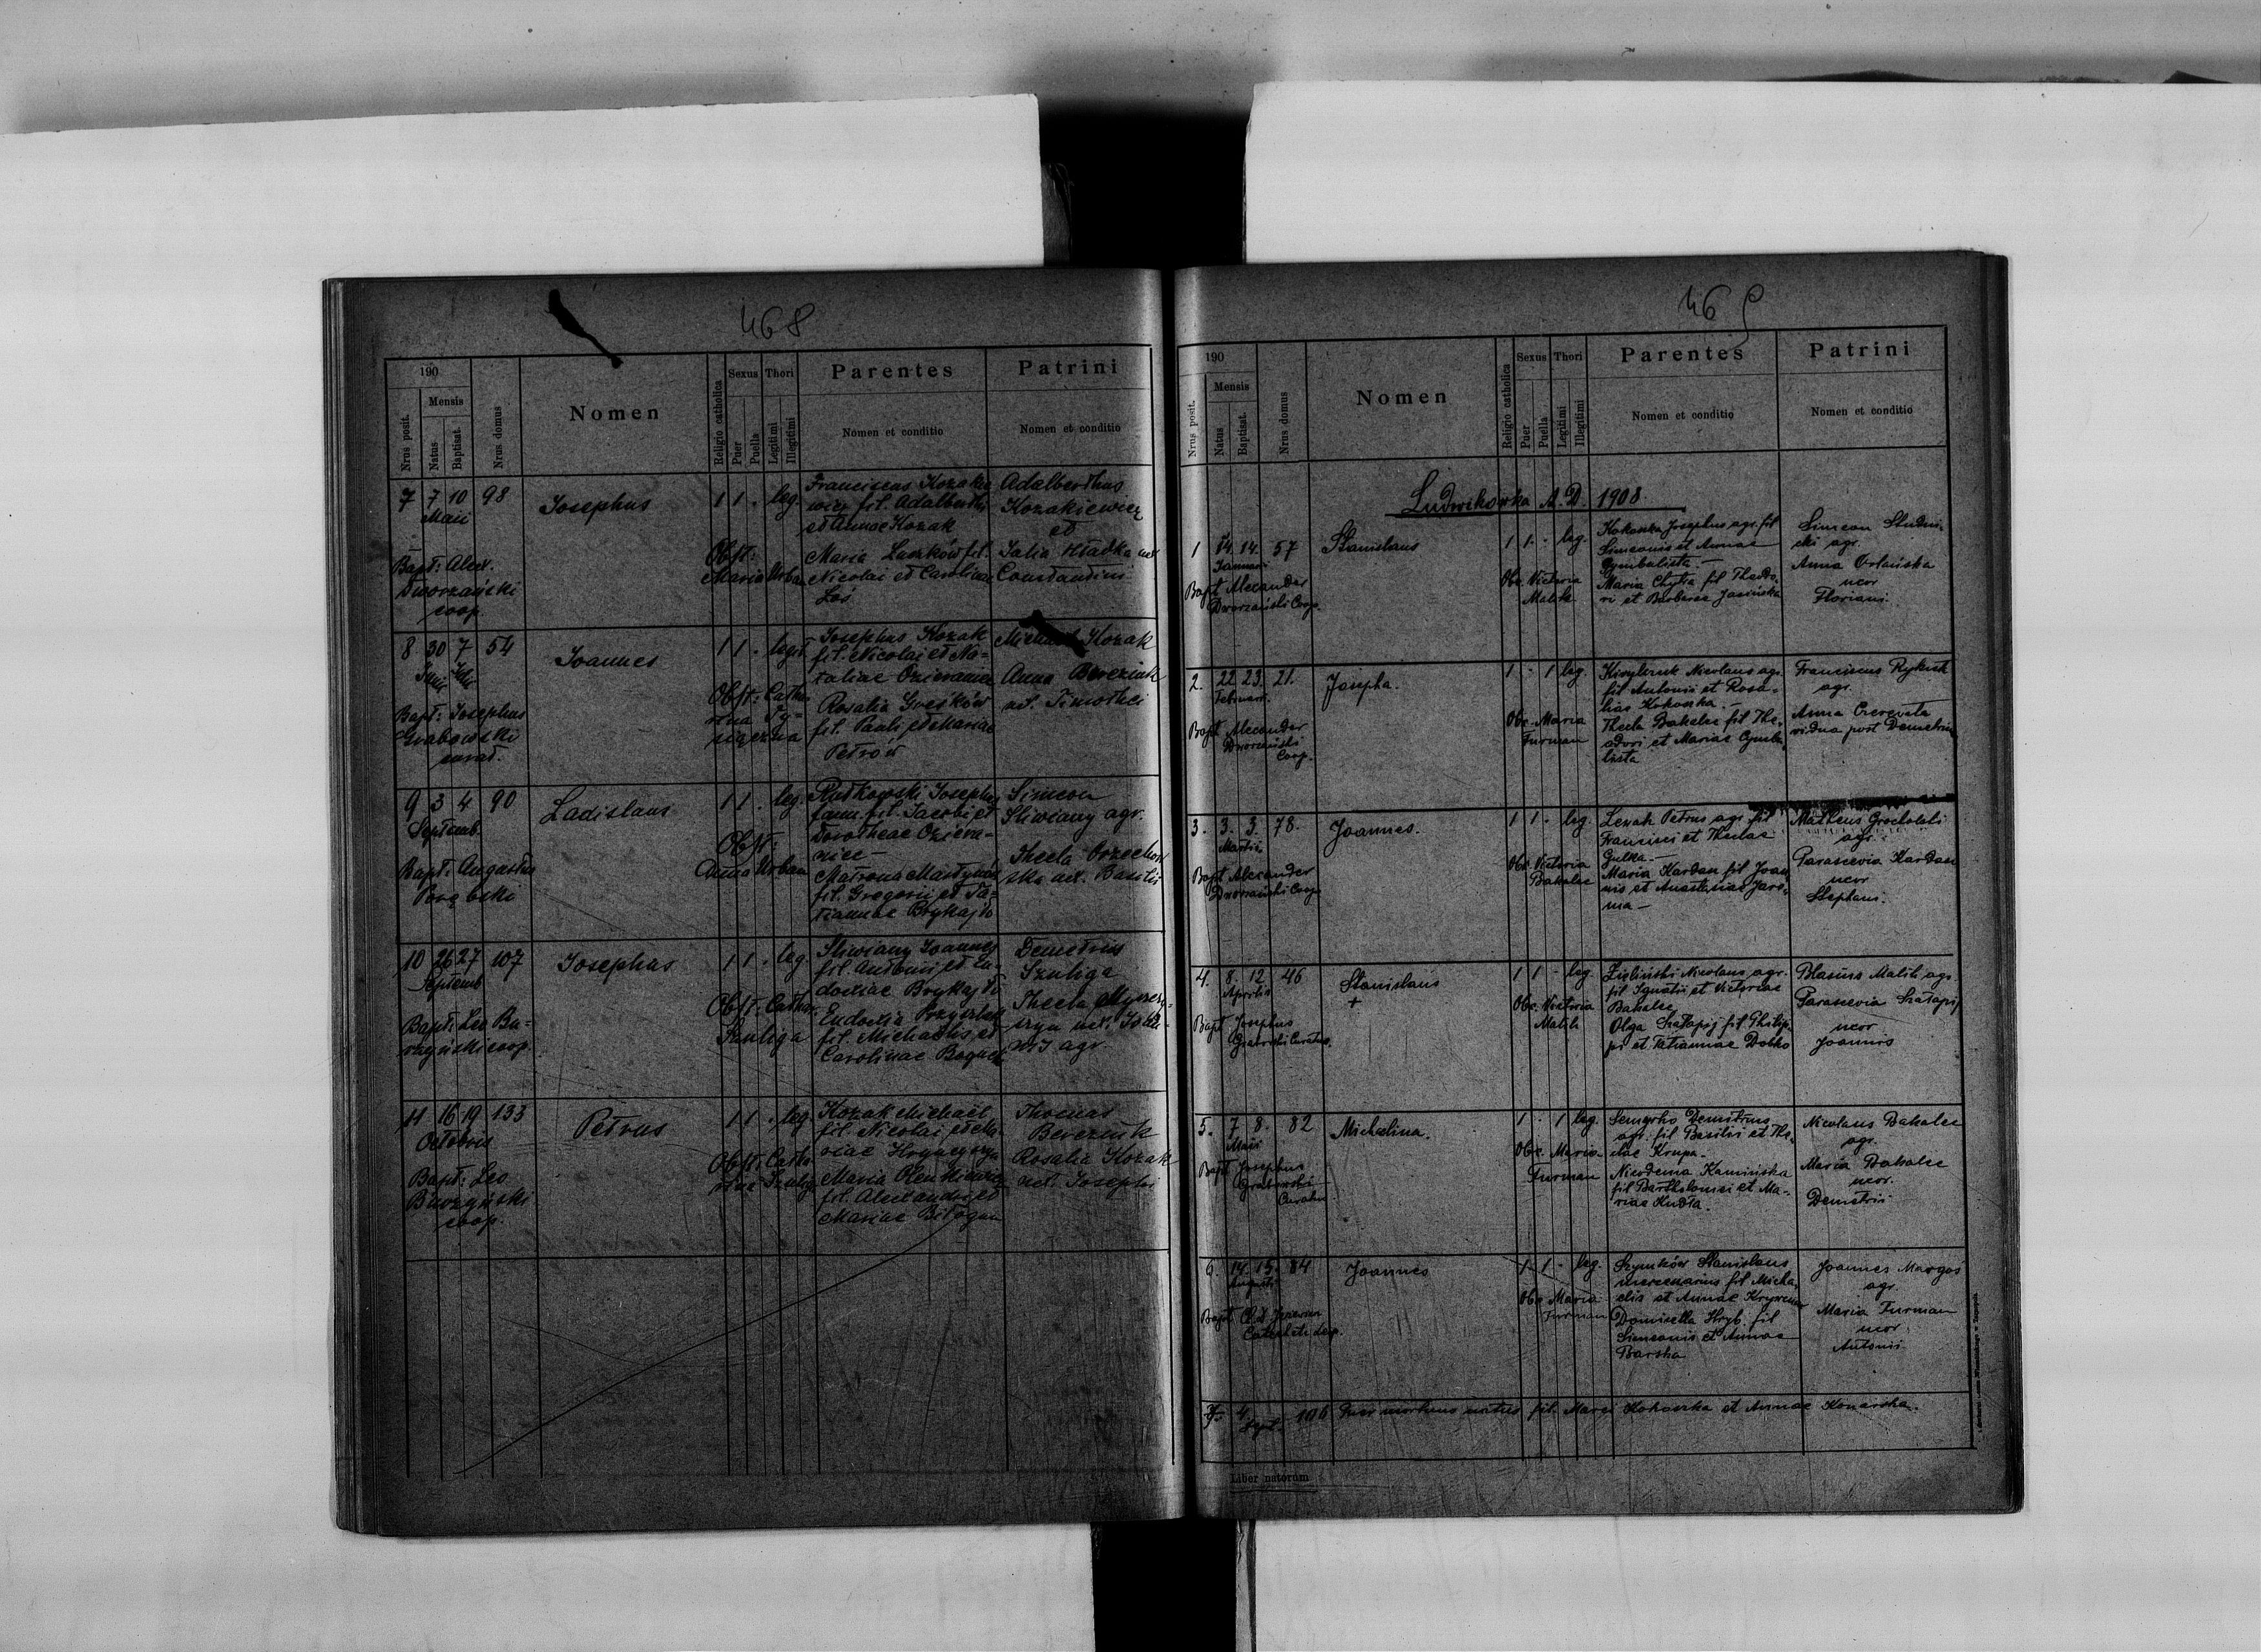 468
190
Mensis
Nrus posit.
Natus
Baptisat.
Nrus domus
Nomen
Religio catholica
Sexus
Puer
Puella
Thori
Legitimi
Illegitimi
Parentes
Nomen et conditio
Patrini
Nomen et conditio
7 7 10 98 Josephus 1 1 . leg.
Maii
Bapt: Alex.
Dworzański
coop.
Obst:
Maria Urban
Franciscus Kozakie
wicz fil. Adalberthi
et Annae Kozak
Maria Laszków fil.
Nicolai et Carolinae
Łoś
Adalberthus
Kozakiewicz
et
Julia Hładka ux
Constantini
8 30 7 54 Joannes 1 1 . legit.
Junii Julii
Bapt: Josephus
Grabowski
curat.
Obst: Catha
rina
Josephus Kozak
fil. Nicolai et Na-
taliae
Rosalia
fil. Pauli et Mariae
Petrów
Michael Kozak
Anna Bereziuk
ux. Timothei
9 3 4 90 Ladislaus 1 1 . leg.
Septemb.
Bapt: Augustus
Porębski
Obst:
Anna Urban
Rutkowski Josephus
fam. fil. Jacobi et
Dorotheae
Matrona Martynów
fil. Gregorii et Ta-
tiannae Brykajło
Simeon
Śliwiany agr.
Thecla Orzechow
ska ux. Basilii
10 26 27 107 Josephus 1 1 . leg
Septemb
Bapt: Leo Bu-
rzyński coop.
Obst: Catha.
Szuliga
Śliwiany Joannes
fil. Antonii et Eu-
doxiae Brykajło
Eudoxia
fil. Michaelis et
Carolinae
Demetrius
Szuliga
Thecla
agr.
11 16 19 133 Petrus 1 1 . leg
Octobris
Bapt: Leo
Burzyński
coop.
Obst: Catha
rina Szulig
Kozak Michaël
fil. Nicolai et Ma
riae
Maria
fil. Alexandri et
Mariae
Thomas
Bereziuk
Rosalia Kozak
ux. Josephi
469
190
Mensis
Nrus posit.
Natus
Baptisat.
Nrus domus
Nomen
Religio catholica
Sexus
Puer
Puella
Thori
Legitimi
Illegitimi
Parentes
Nomen et conditio
Patrini
Nomen et conditio
Ludwikówka A. D. 1908.
1 14. 14. 57 Stanislaus 1 1. - leg.
Januari
Bapt Alexander
Dworzański Coop.
Obs. Victoria
Malik
Kokoszka Josephus agr. fil
Simeonis et Annae
Cymbalista. -
Maria Chytra fil Theodo-
ri et Barbarae Jasińska
Simeon Studni-
cki agr.
Anna Orlańska
uxor
Floriani.
2. 22. 23. 21. Josepha. 1 - 1 leg.
Februari.
Bapt Alexander
Dworzański
Coop.
Obs. Maria
Furman
Nicolaus agr
fil Antonii et Rosa-
liae Kokoszka. -
Thecla Bakalec fil The-
odori et Mariae Cymba-
lista
Franciscus
agr.
Anna Czerewata
vidua post Demetrium
3. 3. 3. 78. Joannes. 1 1 - leg.
Martii
Bapt Alexander
Dworzański Coop
Obs. Victoria
Bakalec
Petrus agr. fil
Francisci et Theclae
Gulka. -
Maria Kardan fil Joan
nis et Anastasiae Jaro-
ma -
Matheus Grocholski
agr.
Parascevia Kardan
uxor
Stephani.
4. 8. 12 46 Stanislaus 1 1 - leg.
+
Aprilis
Bapt Josephus
Grabowski Curatus.
Obs. Victoria
Malik
Zieliński Nicolaus agr.
fil Ignatii et Victoriae
Bakalec
Olga Szałapij fil Philip-
pi et Tatiannae Dołko
Blasius Malik agr
Parascevia Szałapij
uxor
Joannis
5. 7 8. 82 Michalina. 1 - 1 leg.
Maii
Bapt Josephus
Grabowski
Curatus.
Obs. Maria
Furman
Demetrius
agr. fil Basilii et The-
clae Krupa.
Nicodema Kamińska
fil Bartholomei et Ma-
riae Kudła.
Nicolaus Bakalec
agr.
Maria Bakalec
uxor.
Demetrii
6. 14. 15. 84 Joannes 1 1 - leg.
Augusti
Obs. Maria
Furman
Szymków Stanislaus
mercenarius fil Micha-
elis et Annae
Domicella Hryb. fil
Simeonis et Annae
Barska
Joannes Margos
agr.
Maria Furman
uxor
Antonii.
7. 4. 106 Puer mortuus natus fil. Marci Kokoszka et Annae Konarska.
Sept.
Liber natorum